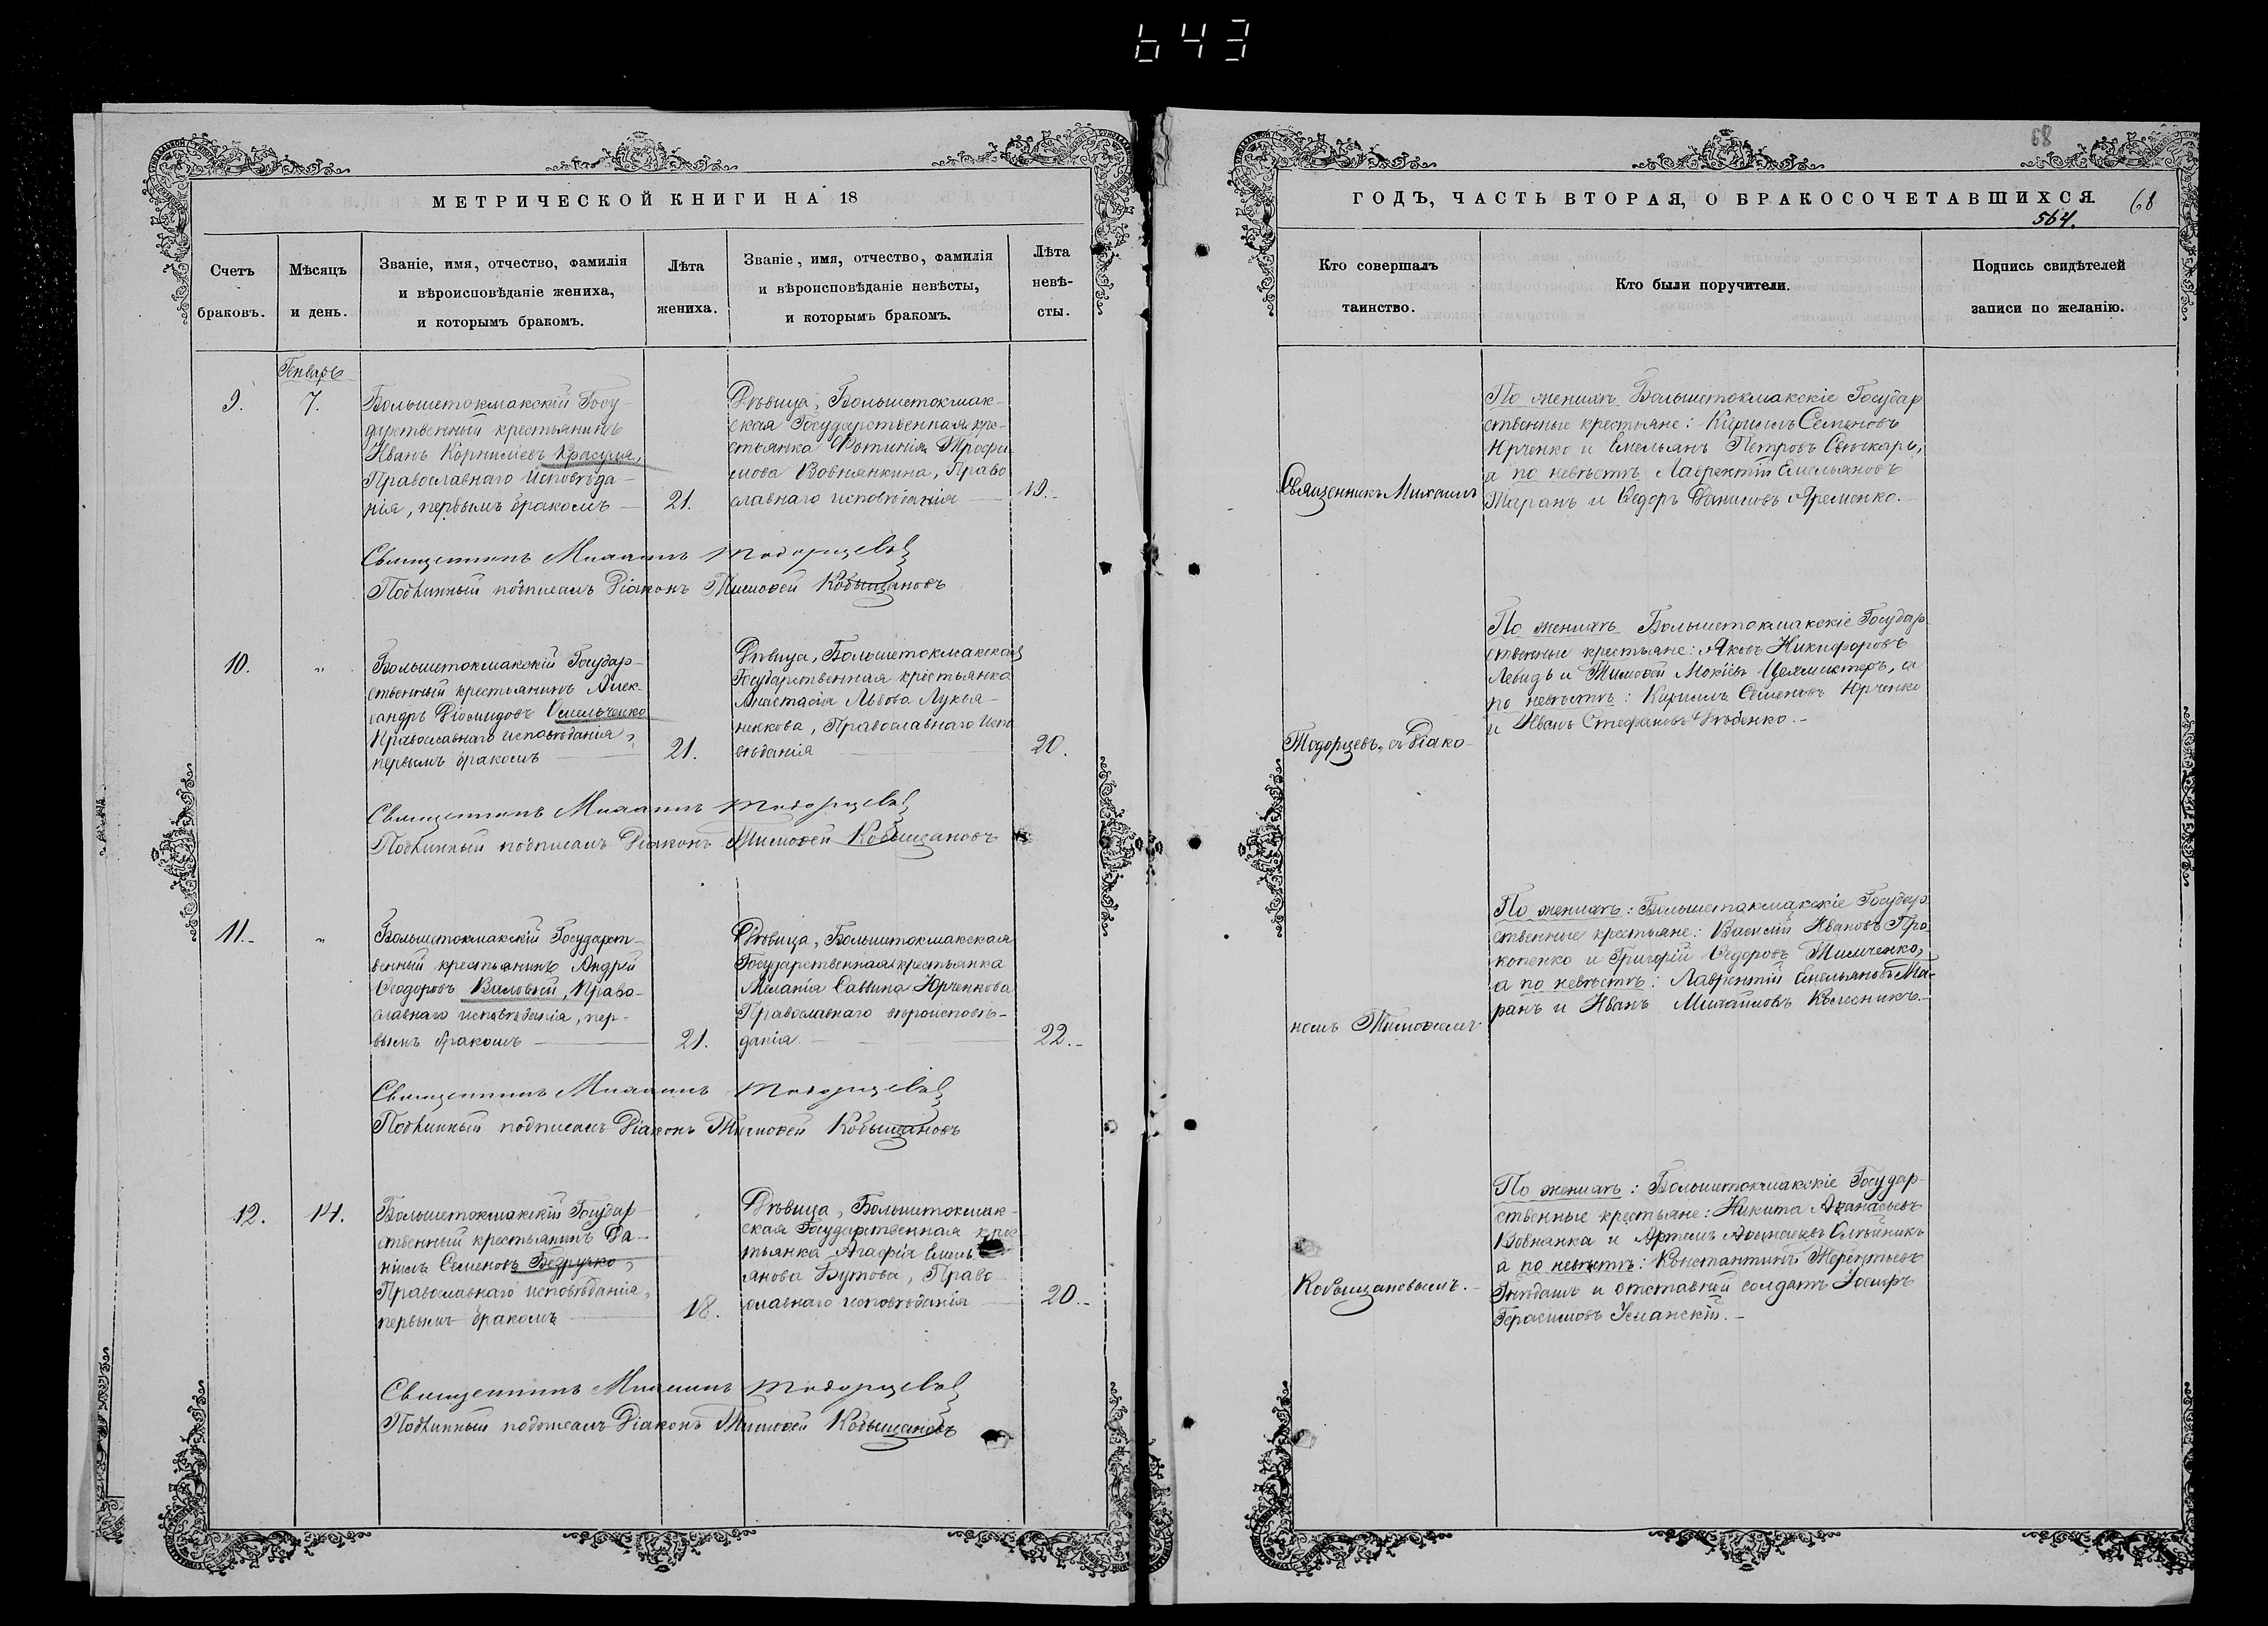 643
МЕТРИЧЕСКОЙ КНИГИ НА 18
Счетъ браковъ.
Мѣсяцъ и день.
Званіе, имя, отчество, фамилія
и вѣроисповѣданіе жениха,
и которымъ бракомъ.
Лѣта жениха.
Званіе, имя, отчество, фамилія
и вѣроисповѣданіе невѣсты,
и которымъ бракомъ.
Лѣта невѣ-
сты.
Январь
9.
7.
Большетокмакскій Госу-
дарственный крестьянинъ
Иванъ Корниліевъ Красуля,
Православнаго исповѣда-
нія, первымъ бракомъ
21.
Дѣвица, Большетокмак-
ская Государственная кре-
стьянка Фотинія Трофи
мова Вовнянкина, Право
славнаго исповѣданія
19.-
Священникъ Михаилъ Тодорцевъ
Подлинный подписалъ Діаконъ Тимоѳей Кобыщановъ
10.
"
Большетокмакскій Государ-
ственный крестьянинъ Алек-
сандръ Діомидовъ Омельченко
Православнаго исповѣданія,
первымъ бракомъ
21.
Дѣвица, Большетокмакская
Государственная крестьянка
Анастасія Львова Лукья-
ненкова, Православнаго испо
вѣданія
20.
Священникъ Михаилъ Тодорцевъ
Подлинный подписалъ Діаконъ Тимоѳей Кобыщановъ
11.-
"
Большетокмакскій Государст-
венный крестьянинъ Андрей
Ѳеодоровъ Валовый, Право-
славнаго исповѣданія, пер-
вымъ бракомъ
21.
Дѣвица, Большетокмакская
Государственная крестьянка
Меланія Саввина Юрченкова
Православнаго вѣроисповѣ-
данія.
22.-
Священникъ Михаилъ Тодорцевъ
Подлинный подписалъ Діаконъ Тимоѳей Кобыщановъ
12.
14.
Большетокмакскій Государ
ственный крестьянинъ Да-
ніилъ Семеновъ
Православнаго исповѣданія,
первымъ бракомъ
18.
Дѣвица, Большетокмак-
ская Государственная крес
тьянка Агафія Емель
янова Бутова, Право
славнаго исповѣданія
20.-
Священникъ Михаилъ Тодорцевъ
Подлинный подписалъ Діаконъ Тимоѳей Кобыщановъ
68
ГОДЪ, ЧАСТЬ ВТОРАЯ, О БРАКОСОЧЕТАВШИХСЯ.
68
564.
Кто совершалъ
таинство.
Кто были поручители.
Подпись свидѣтелей
записи по желанію.
Священникъ Михаилъ
По женихѣ Большетокмакскіе Государ
ственные крестьяне: Кириллъ Семеновъ
Юрченко и Емельянъ Петровъ
а по невѣстѣ Лаврентій Емельяновъ
Таранъ и Ѳедоръ Даниловъ Яременко.-
Тодорцевъ, съ Діако-
По женихѣ Большетокмакскіе Государ
ственные крестьяне: Яковъ Никифоровъ
Лебидь и Тимоѳей Мокіевъ Цехмистеръ, а
по невѣстѣ: Кириллъ Семеновъ Юрченко
и Иванъ Стефановъ Дѣденко.-
номъ Тимоѳеемъ
По женихѣ: Большетокмакскіе Государ
ственные крестьяне: Василій Ивановъ Про
копенко и Григорій Ѳедоровъ Тимченко,
а по невѣстѣ: Лаврентій Емельяновъ Та-
ранъ и Иванъ Михайловъ Колесникъ.-
Кобыщановымъ.-
По женихѣ: Большетокмакскіе Государ
ственные крестьяне: Никита Аѳанасьевъ
Вовнянка и Артемъ Олѣйникъ
а по невѣстѣ: Константинъ Терентьевъ
и отставный солдатъ Іосифъ
Герасимовъ Уманскій.-